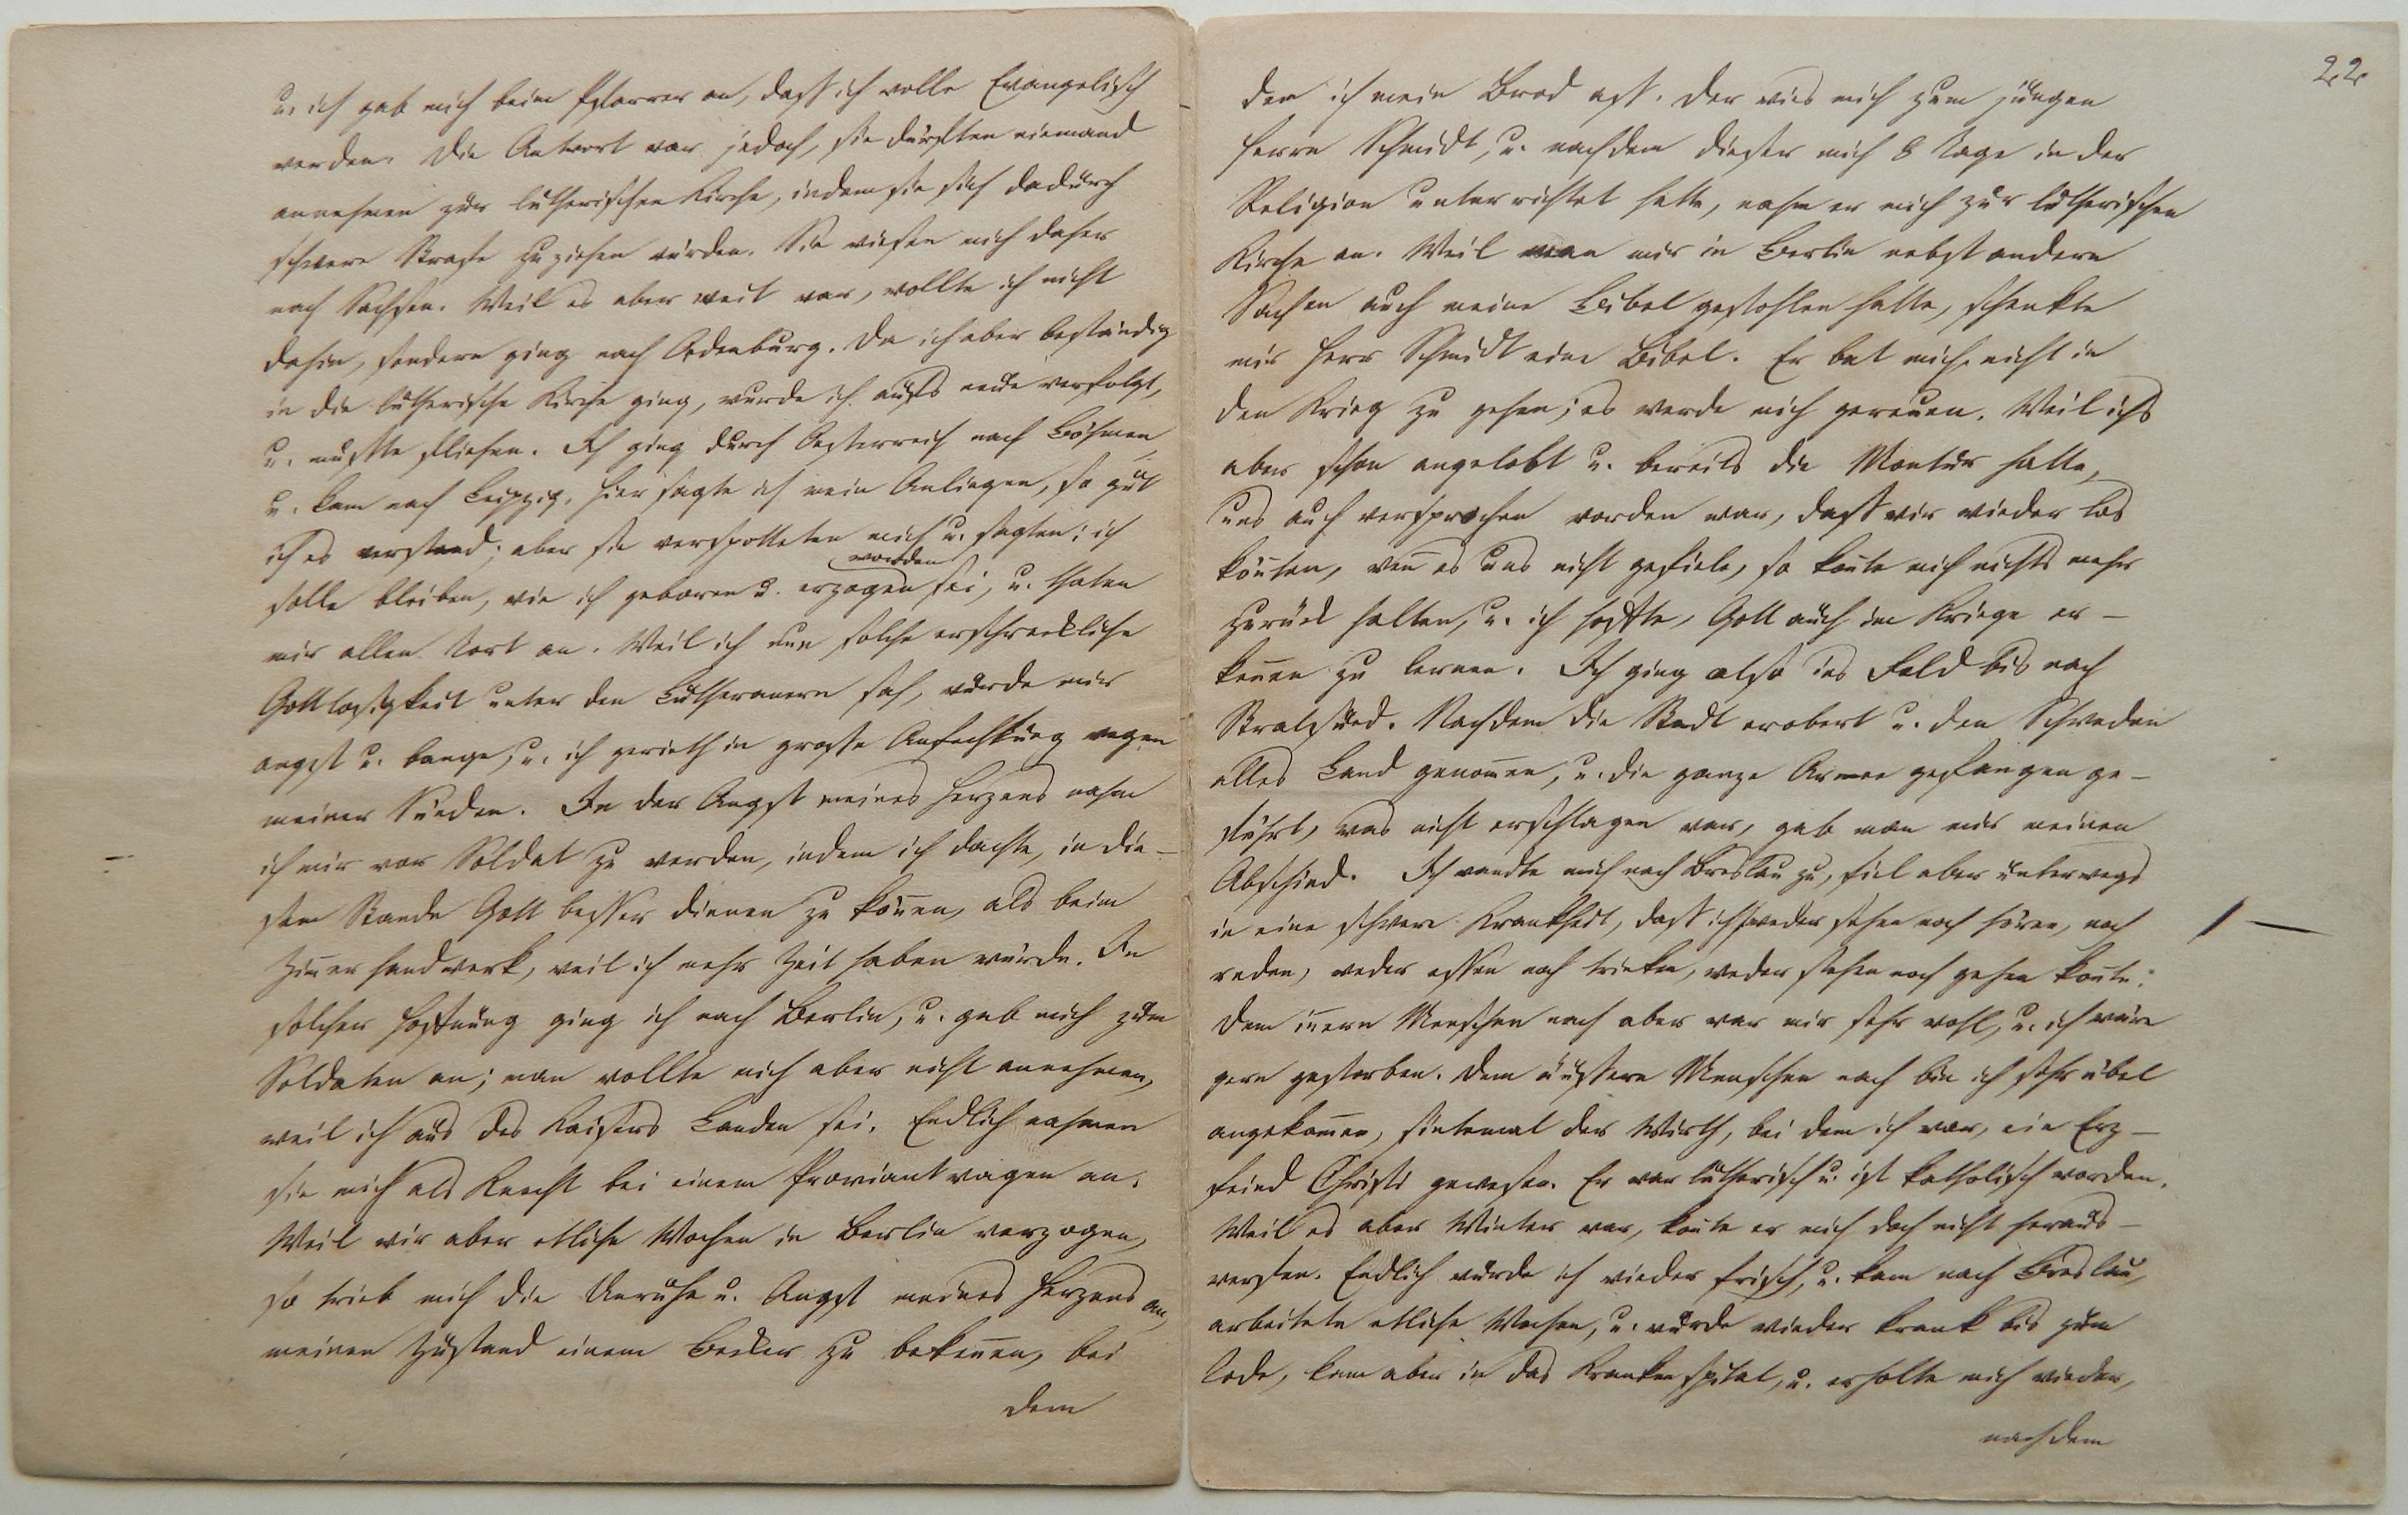 u. ich gab mich beim Pfarrer an, dass ich wolle Evangelisch
werden. Die Antwort war jedoch, sie dürften niemand
annehmen zur lutherischen Kirche, indem sie sich dadurch
schwere Strafe zuziehen würden. Sie wiesen mich daher
nach Sachsen. Weil es aber weit war, wollte ich nicht
dahin, sondern ging nach Oedenburg. Da ich aber beständig
in die lutherische Kirche ging, wurde ich aufs neue verfolgt,
u. musste fliehen. Ich ging durch Oesterreich nach Böhmen
u. kam nach Leipzig. Hier sagte ich mein Anliegen, so gut
ich es verstand; aber sie verspotteten mich u. sagten: ich
solle bleiben, wie ich geboren u. erzogen worden sei, u. thaten
mir allen Tort an. Weil ich nun solche erschreckliche
Gottlosigkeit unter den Lutheranern sah, wurde mir
angst u. bange, u. ich gerieth in grosse Anfechtung wegen
meiner Sünden. In der Angst meines Herzens nahm
ich mir vor Soldat zu werden, indem ich dachte, in die-
sem Stande Gott besser dienen zu können, als beim
Zimerhandwerk, weil ich mehr Zeit haben würde. In
solcher Hoffnung ging ich nach Berlin, u. gab mich zum
Soldaten an; man wollte mich aber nicht annehmen,
weil ich aus des Kaisers Landen sei. Endlich nahmen
sie mich als Knecht bei einem Proviantwagen an.
Weil wir aber etliche Wochen in Berlin verzogen,
so trieb mich die Unruhe u. Angst meines Herzens an,
meinen Zustand einem Becker zu bekennen, bei
dem
22.
dem ich mein Brod ass. Der wies mich zum jungen
Herrn Schmidt, u. nachdem dieser mich 8 Tage in der
Religion unterrichtet hatte, nahm er mich zur lutherischen
Kirche an. Weil man mir in Berlin nebst andern
Sachen auch meine Bibel gestohlen hatte, schenkte
mir Herr Schmidt eine Bibel. Er bat mich nicht in
den Krieg zu gehen; es werde mich gereuen. Weil ichs
aber schon angelobt u. bereits die Montur hatte,
uns auch versprochen worden war, dass wir wieder los
könten, wen es uns nicht gefiele, so konte mich nichts mehr
zurück halten, u. ich hoffte, Gott auch im Kriege er-
kennen zu lernen. Ich ging also ins Feld bis nach
Stralsund. Nachdem die Stadt erobert u. den Schweden
alles Land genomen, u. die ganze Armee gefangen ge-
führt, was nicht erschlagen war, gab man mir meinen
Abschied. Ich wandte mich nach Breslau zu, fiel aber unterwegs
in eine schwere Krankheit, dass ich weder sehen noch hören, noch
reden, weder essen noch trinken, weder stehen noch gehen konte.
Dem inern Menschen nach aber war mir sehr wohl, u. ich wäre
gern gestorben. Dem äussern Menschen nach bin ich sehr übel
angekomen, sintemal der Wirth, bei dem ich war, ein Erz-
feind Christi gewesen. Er war lutherisch u. ist katholisch worden.
Weil es aber Winter war, konte er mich doch nicht heraus-
werfen. Endlich wurde ich wieder frisch, u. kam nach Breslau,
arbeitete etliche Wochen, u. wurde wieder krank bis zum
Tode, kam aber in das Krankenspital, u. erholte mich wieder,
nachdem